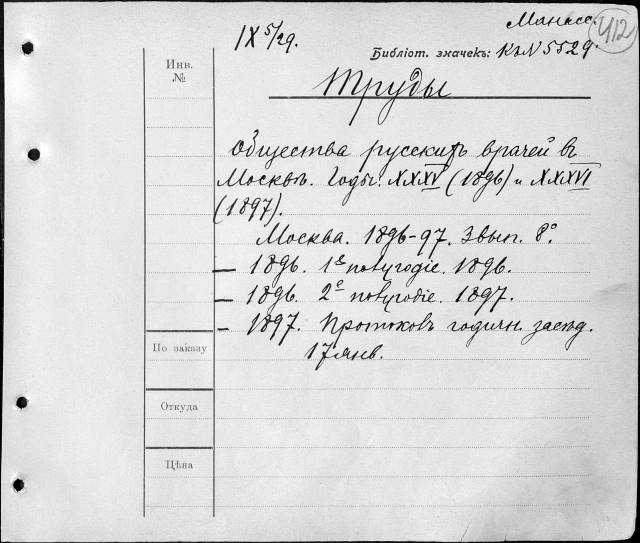 Манасс.
412
IX 5/29.
Библіот. значекъ: К№ 5529.
Инв.
№
Труды
общества русскихъ врачей въ
Москвѣ. Годы: XXXV (1896) и XXXVI
(1897).
Москва. 1896-97. 3 вып. 8°.
— 1896. 1е полугодіе. 1896.
— 1896. 2е полугодіе. 1897.
— 1897. Протоколъ годичн. засѣд.
17 янв.
По заказу
Откуда
Цѣна